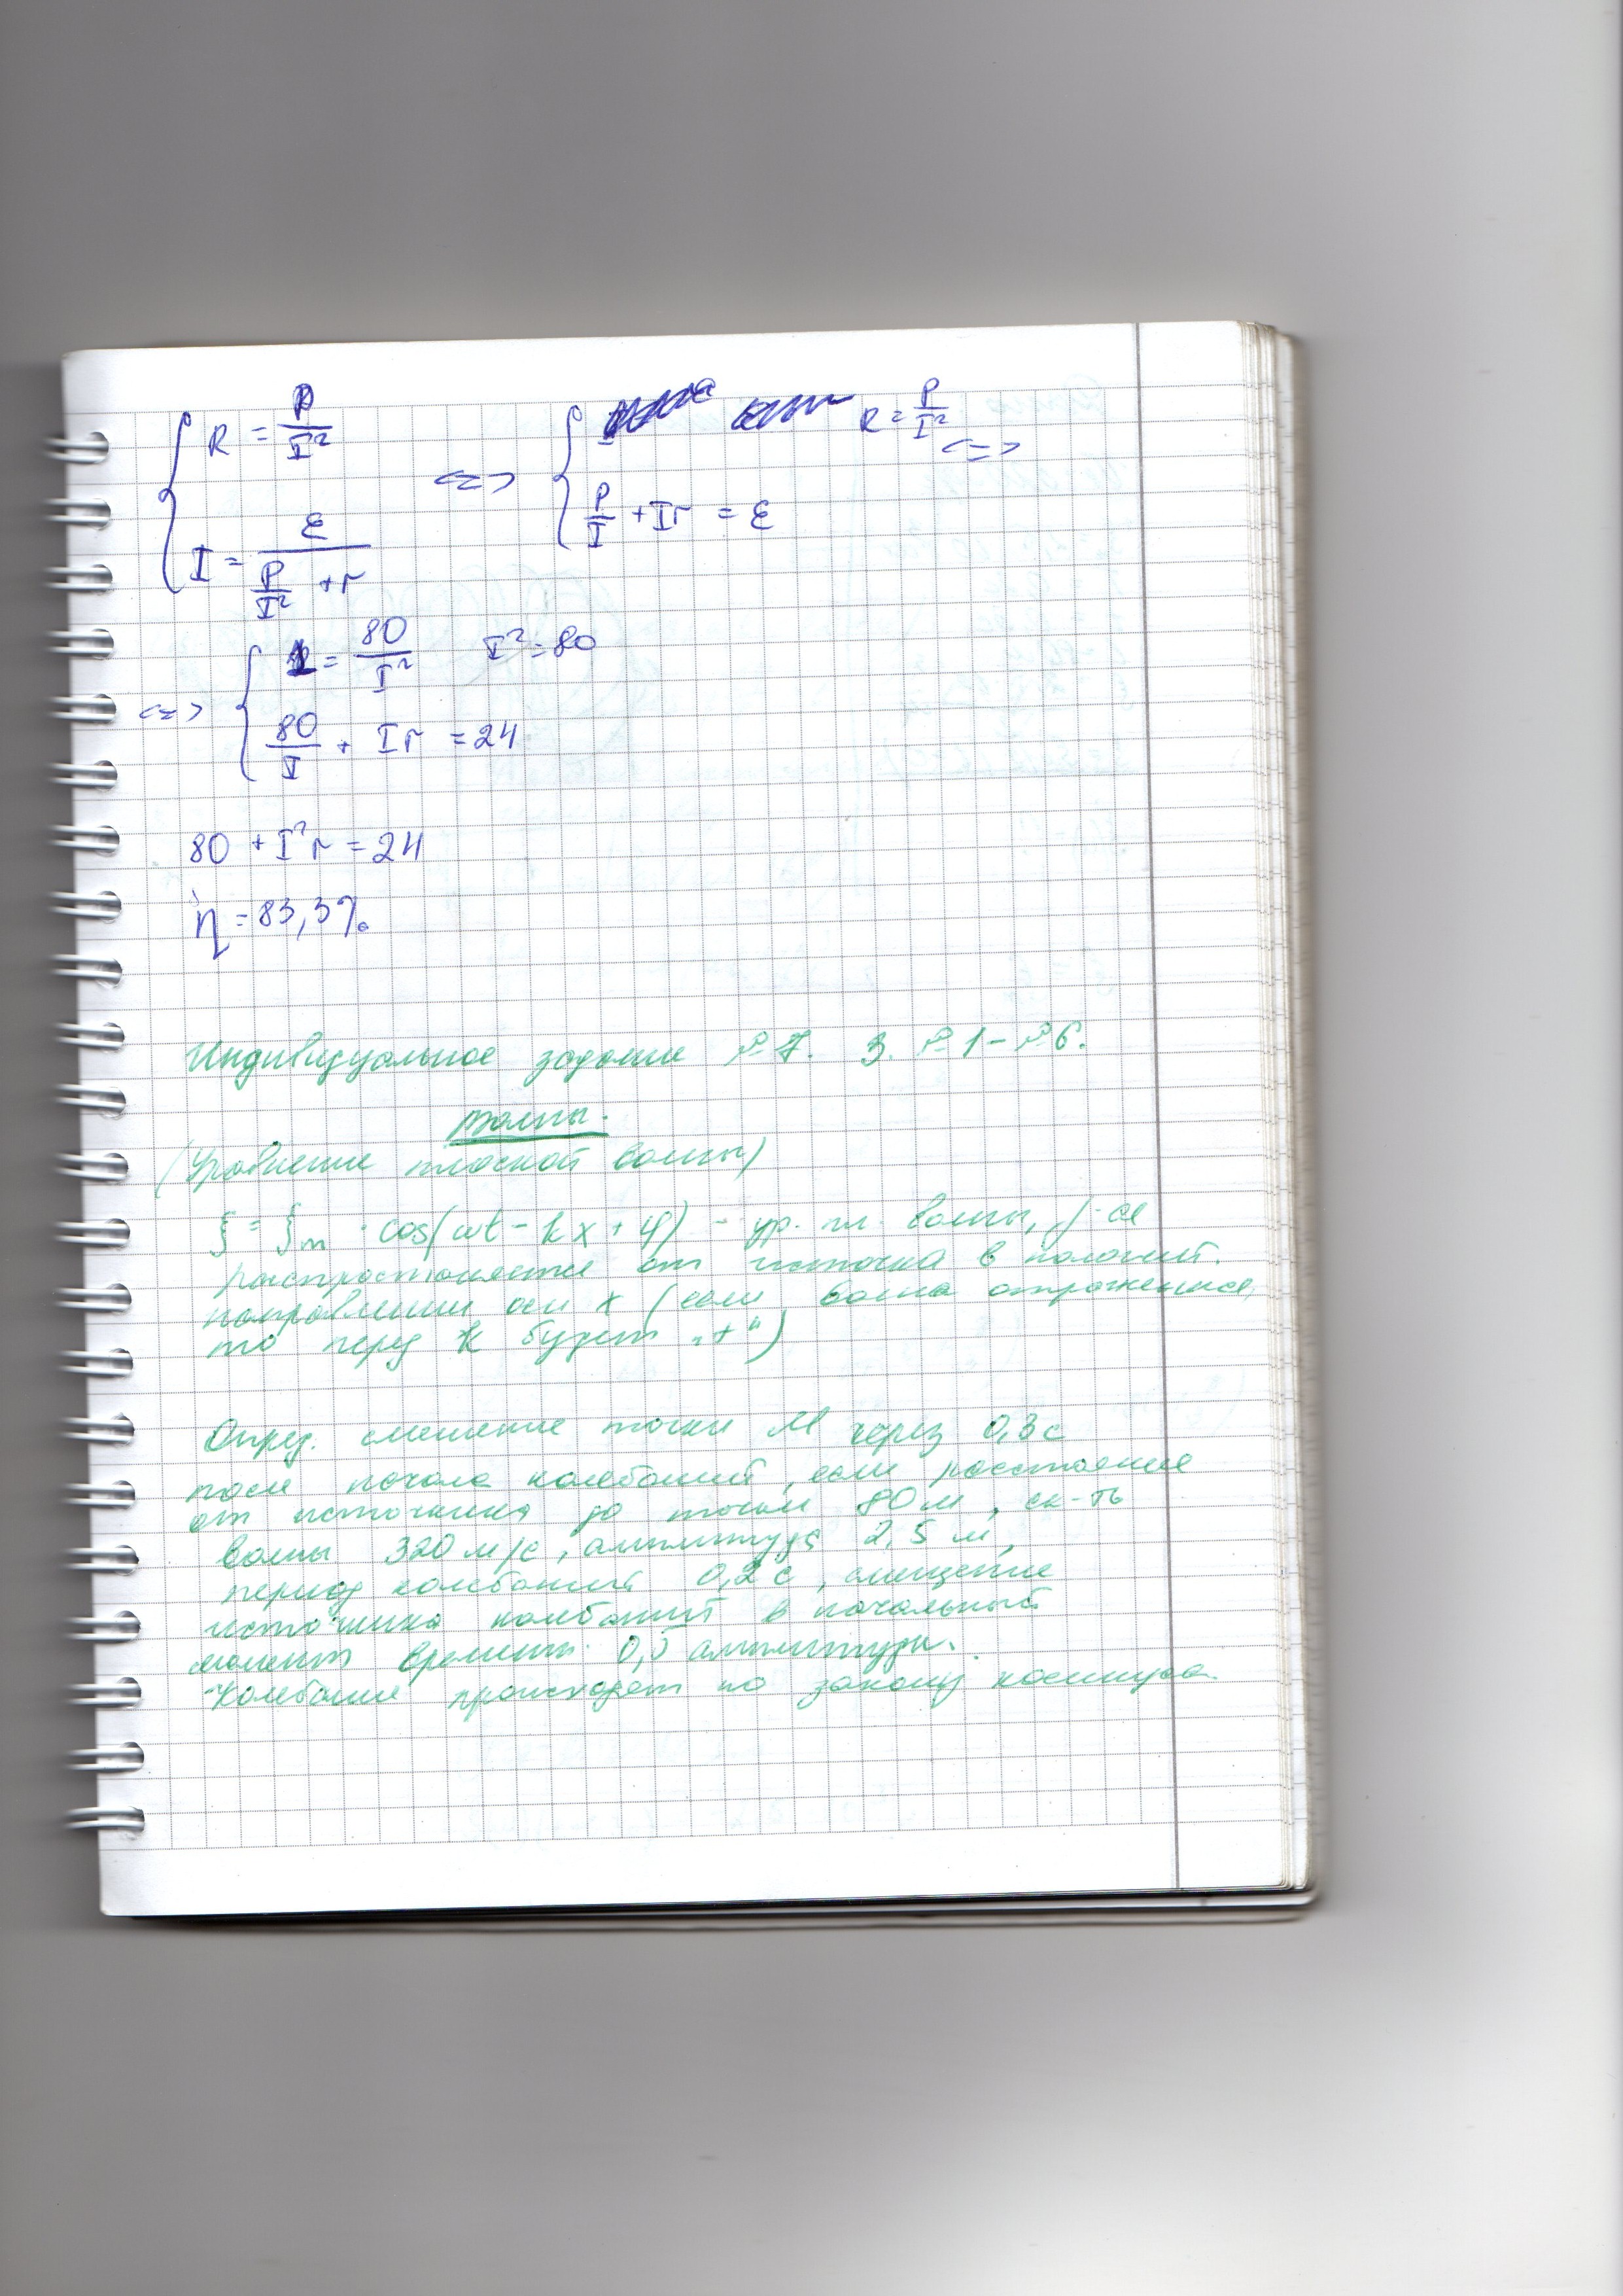 R = P/I² <=> R = P/I² <=>
I = ε/(P/I² + r) P/I + Ir = ε
<=> 1 = 80/I² I² = 80
80/I + Ir = 24
80 + I²r = 24
η = 83,3%
Индивидуальное задание №7. З. №1 - №6.
Волны.
(Уравнение плоской волны)
ξ = ξm · cos(ωt - kx + φ) - ур. пл. волны,
распространяется от источника в положит.
направлении оси x (если волна отраженная,
то перед k будет "+")
Опред. смещение точки М через 0,3 с
после начала колебаний, если расстояние
от источника до точки 80 м, ск-ть
волны 320 м/с, амплитуда 2,5 м,
период колебаний 0,2 с, смещение
источника колебаний в начальный
момент времени 0,5 амплитуды.
Колебание происходят по закону косинуса.